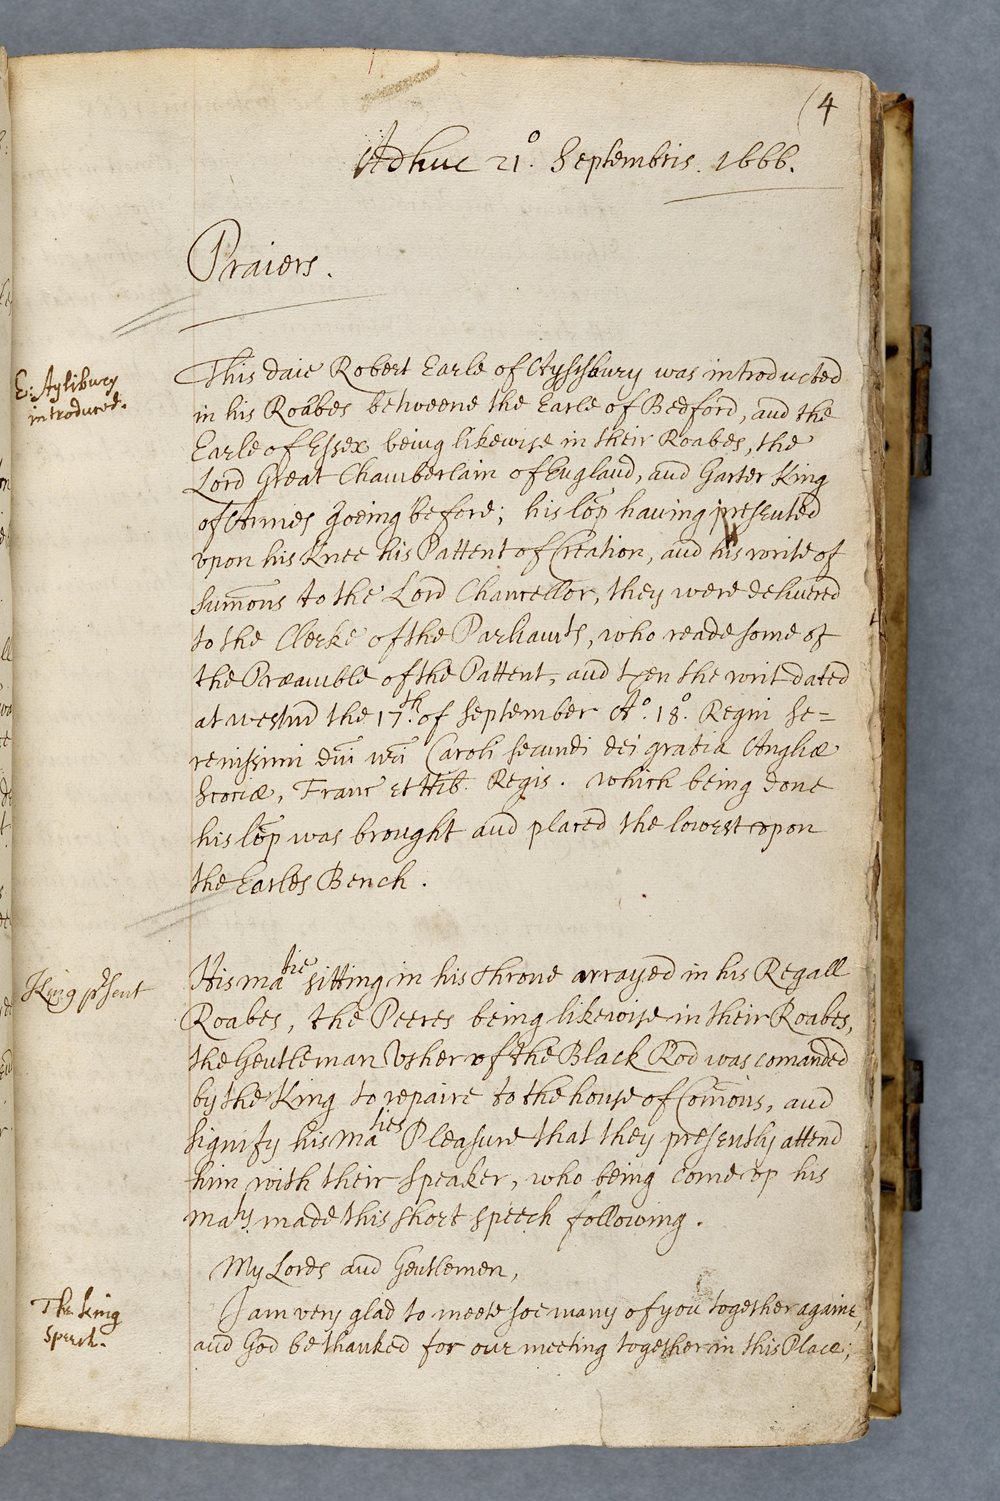 (4
Adhuc 21º. Septembris. 1666.
Praiers.
E: Aylibury
introduced.
This daie Robert Earle of Aylsbury was introducted
in his Roabes betweene the Earle of Bedford, and the
Earle of Essex being likewise in their Roabes, the
Lord Great Chamberlain of England, and Garter King
of Armes goeing before; his lop̄ having presented
vpon his Knee his Pattent of Creation, and his write of
sum̄ons to the Lord Chancellor, they were delivered
to the Clerke of the Parliamts, who reade some of
the Præamble of the Pattent, and then the writ dated
at Westm̄ the 17th. of September Aº. 18º. Regni Se=
renissimi dn̄i nr̄i Caroli secundi dei gratiæ Angliæ
Scotiæ, Franc et Hib. Regis. which being done
his lop̄ was brought and placed the lowest vpon
the Earles Bench.
King pr̄sent
His matie sitting in his throne arrayed in his Regall
Roabes, the Peeres being likewise in their Roabes,
the Gentleman Vsher of the Black Rod was com̄anded
by the King to repaire to the house of Com̄ons, and
signify his maties Pleasure that they presently attend
him with their Speaker, who being come vp his
maty. made this short speech following.
My Lords and Gentlemen,
The King
speech.
I am very glad to meete soe many of you together againe,
and God be thanked for our meeting together in this Place;